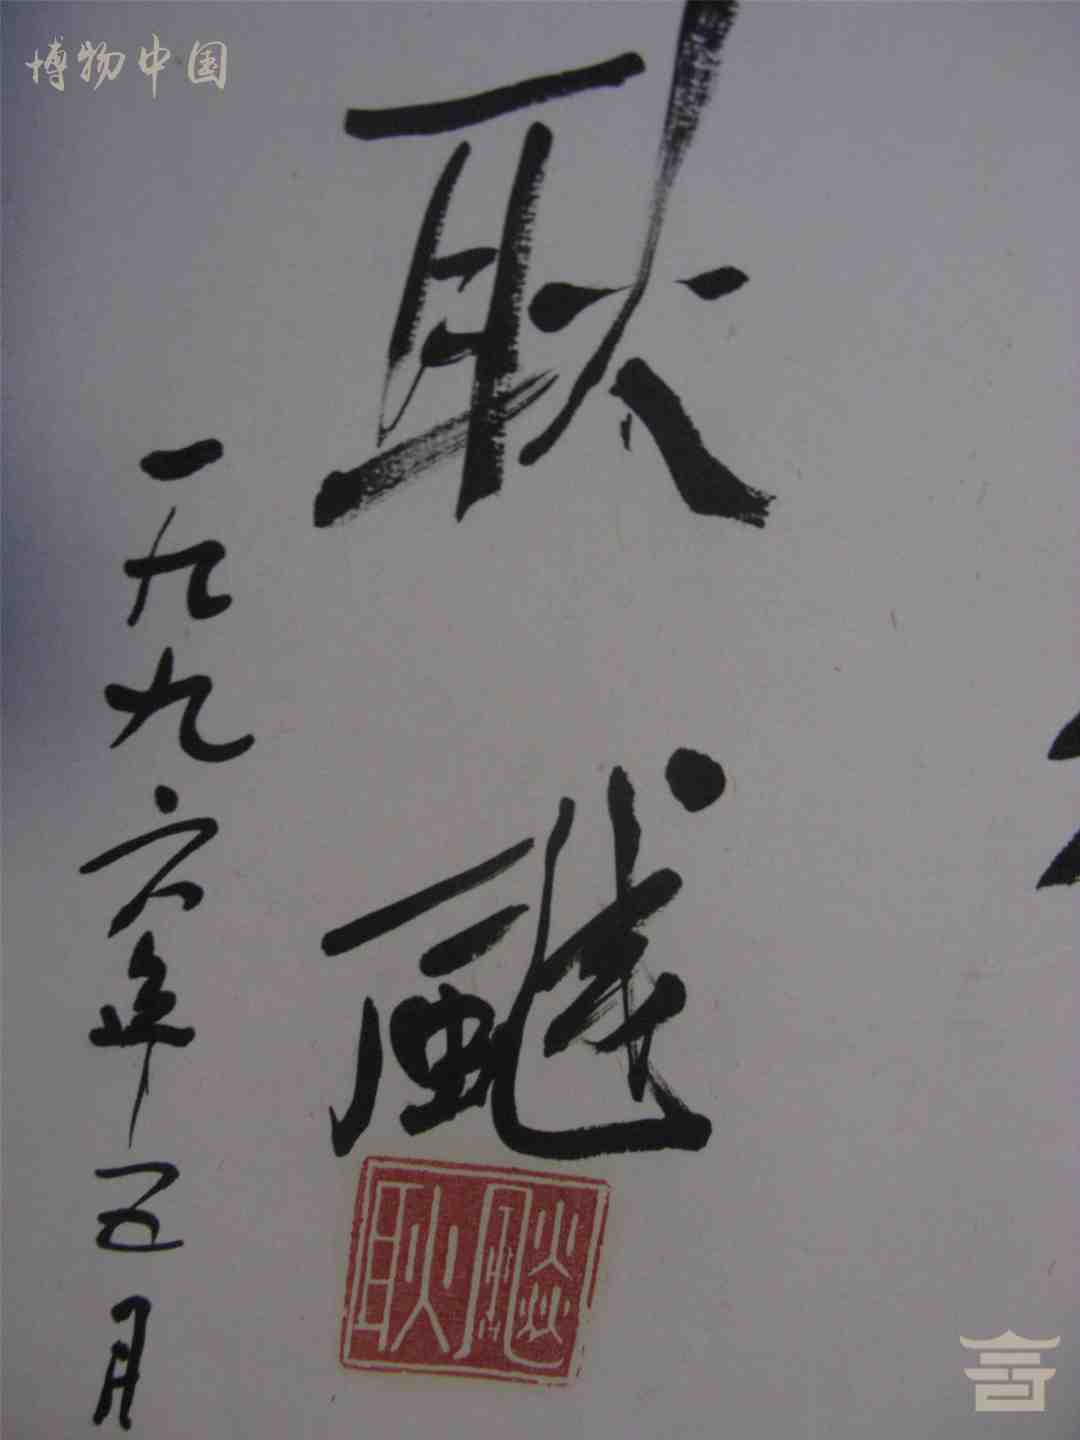 博物中国
耿飈
一九九六年五月
耿飈